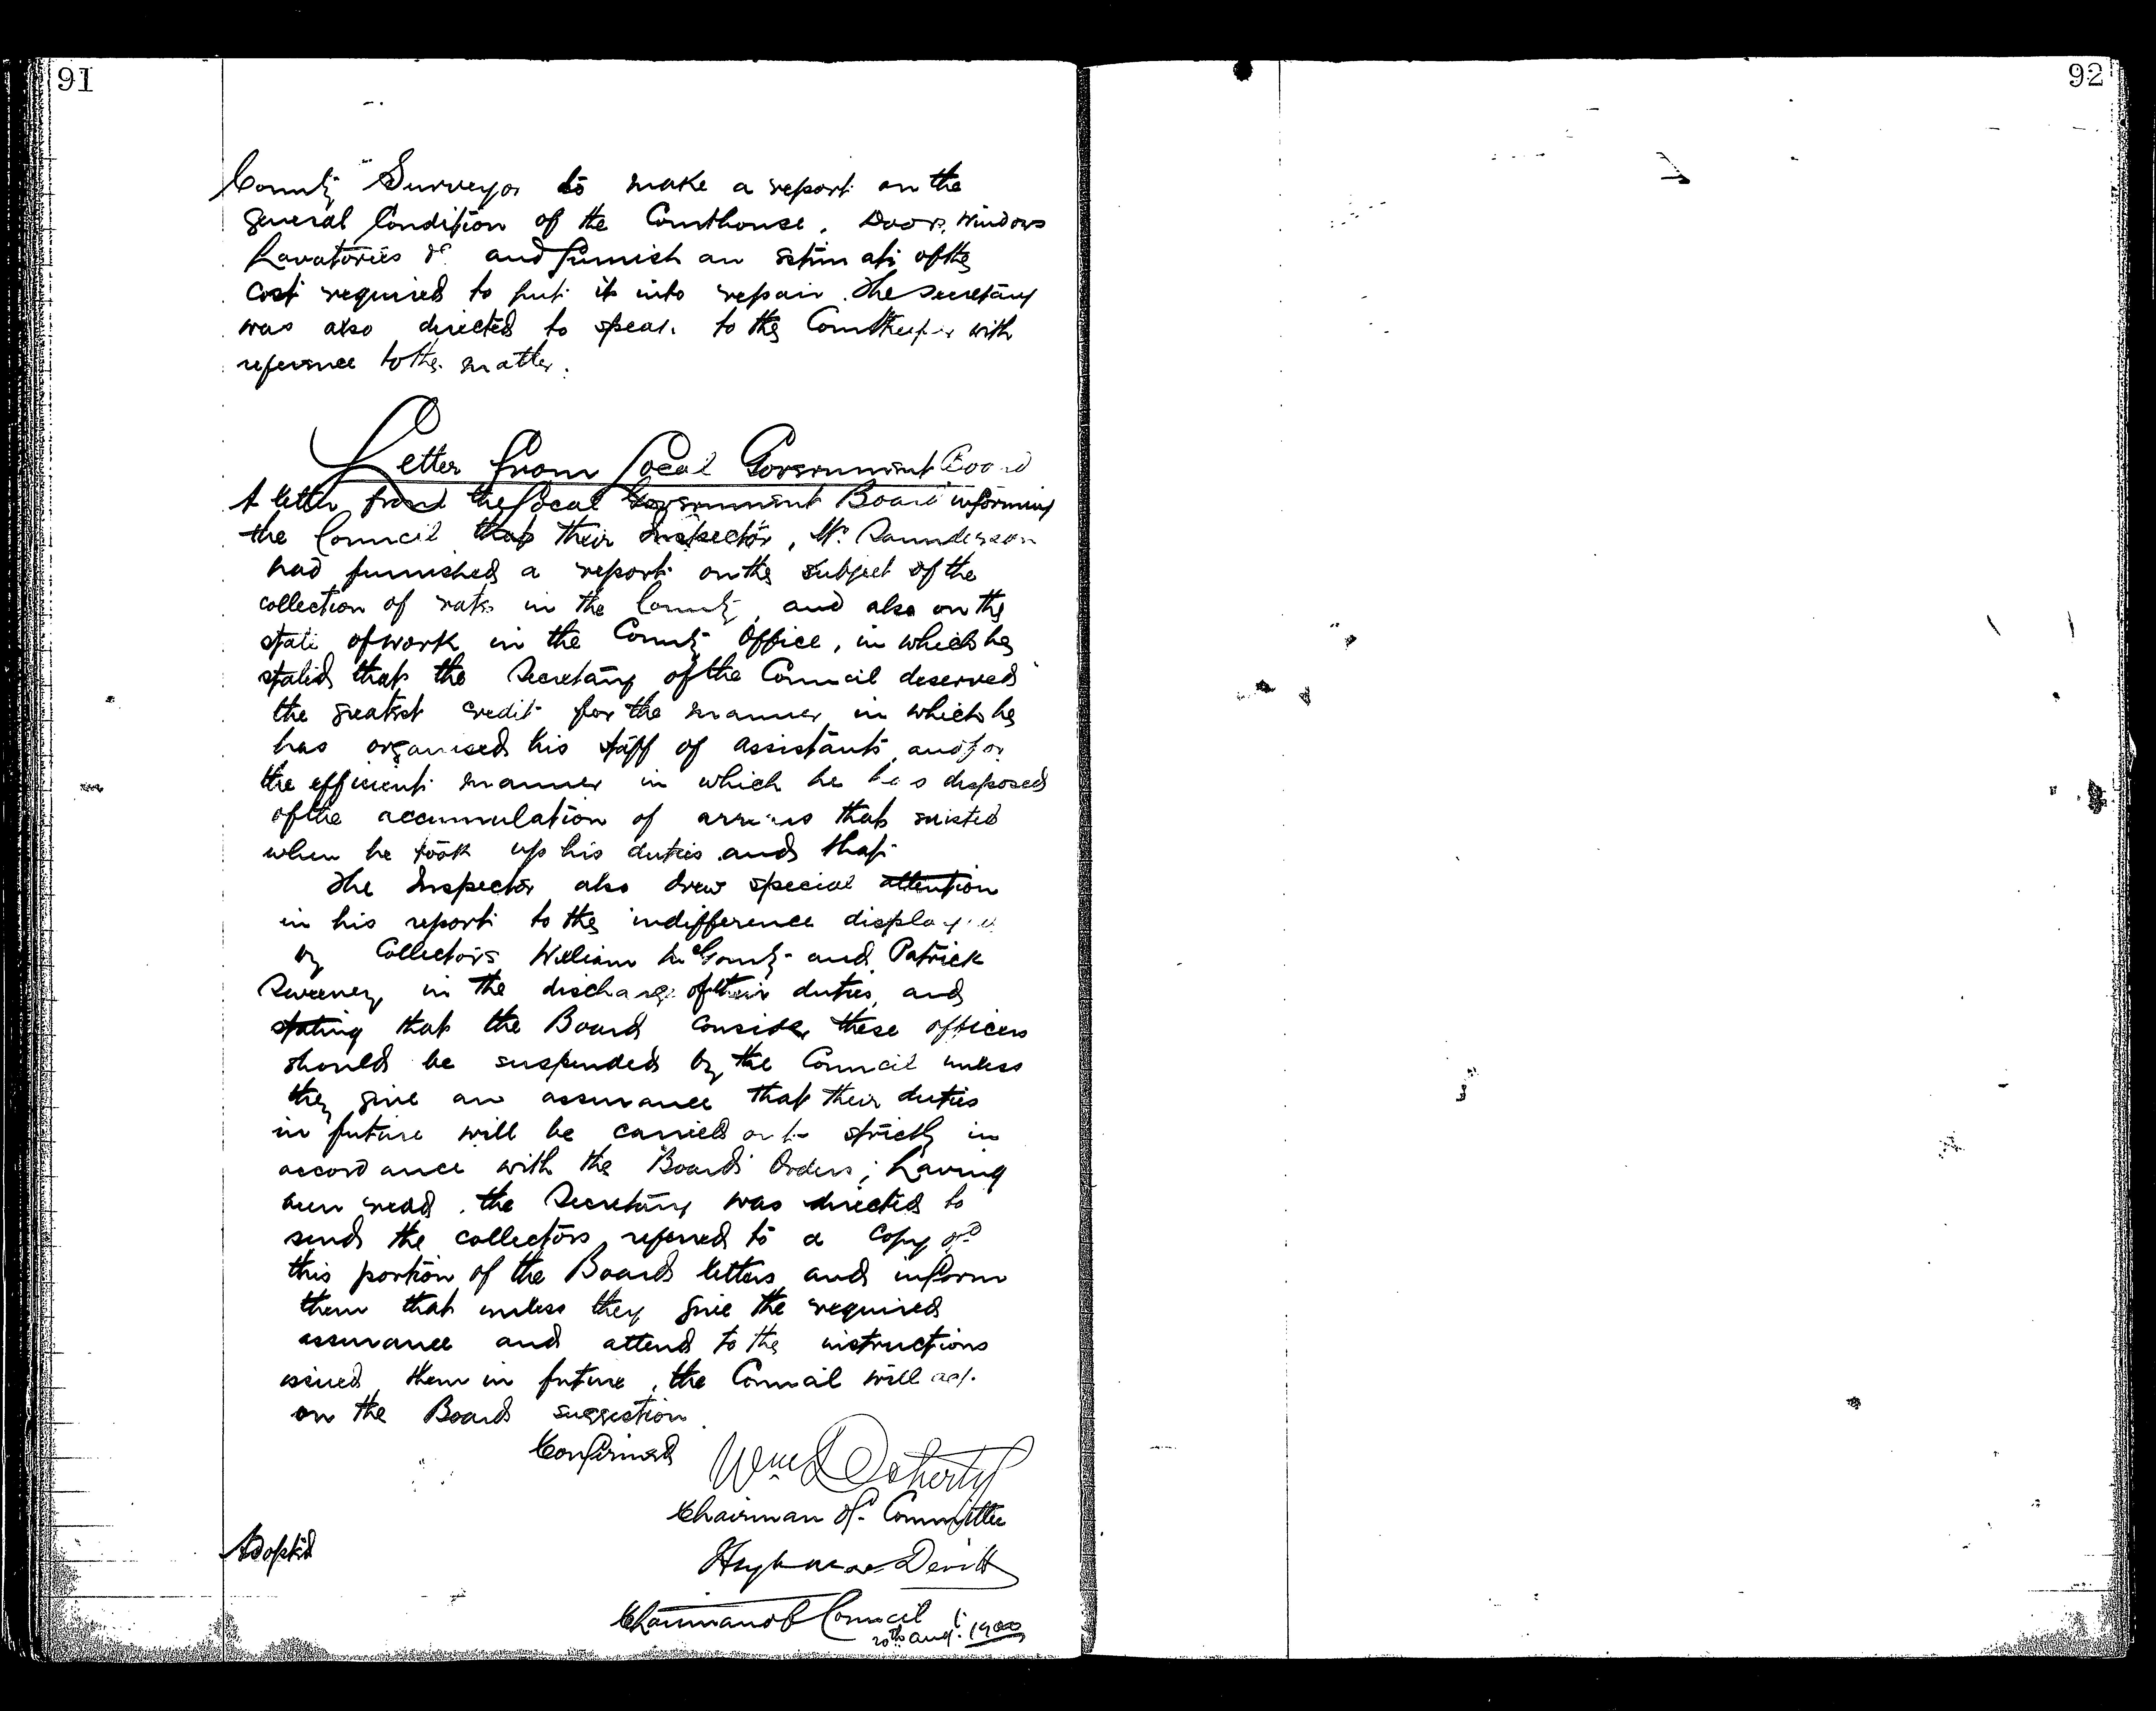 91
County Surveyor to make a report on the
general Condition of the Courthouse, Doors, Windows
Lavatories &c and furnish an estimate of the
cost required to put it into repair. The Secretary
was also directed to speak to the Courtkeeper with
reference to the matter.
Letter from Local Government Board
A letter from the Local Government Board informing
the Council that their Inspector, Mr. Saunderson
had furnished a report on the subject of the
collection of rates in the County, and also on the
state of work in the County Office, in which he
stated that the Secretary of the Council deserved
the greatest credit for the manner in which he
has organised his staff of assistants, and for
the efficient manner in which he has disposed
of the accumulation of arrears that existed
when he took up his duties and that
The Inspector also drew special attention
in his report to the indifference displayed
by Collectors William McGonty and Patrick
Sweeney in the discharge of their duties, and
stating that the Board consider these officers
should be suspended by the Council unless
they give an assurance that their duties
in future will be carried out strictly in
accordance with the Boards Orders; having
been read, the Secretary was directed to
send the collectors referred to a copy of
this portion of the Boards letters and inform
them that unless they give the required
assurance and attend to the instructions
issued them in future, the Council will act
on the Boards suggestion.
Confirmed Wm Doherty
Chairman of Committee
Adopted
Hugh Mac Devitt
Chairman of Council
20th Aug: 1900
92